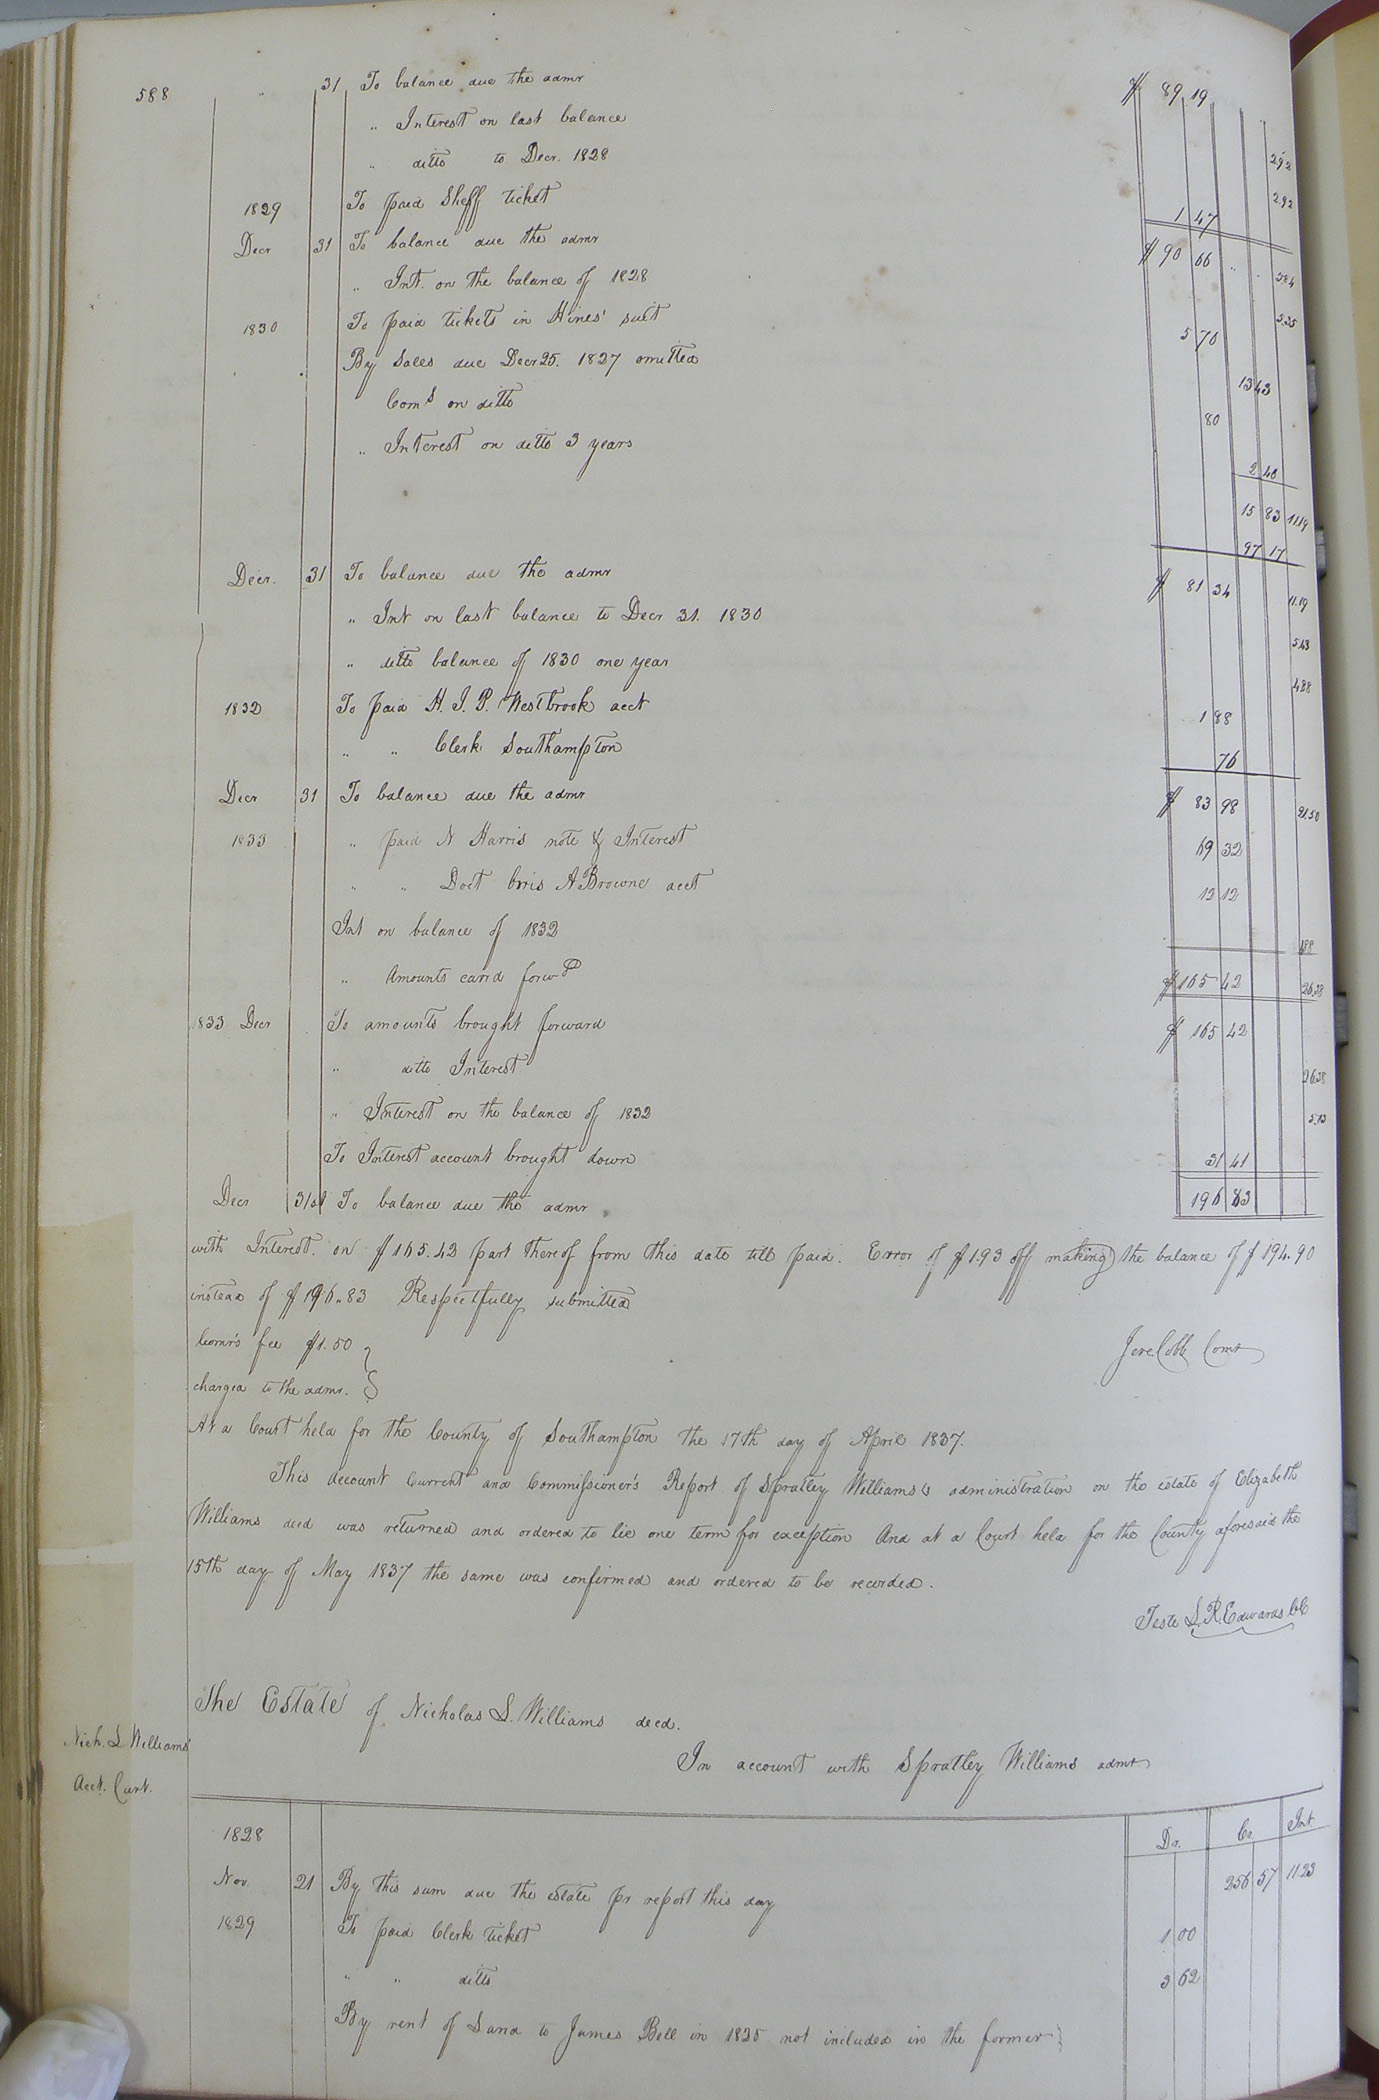 588
31 To balance due the admr $ 89 19
" Interest on last balance 292
" ditto to Decr. 1828 2.92
1829 To paid Sheff ticket 1 47
Decr 31 To balance due the admr $ 90 66 " " 584
" Int. on the balance of 1828 5.35
1830 To paid tickets in Hines' suit 5 70
By Sales due Decr 25. 1827 omitted 13 43
Coms on ditto 80
" Interest on ditto 3 years 2 40
15 83 11.19
97 17
Decr. 31 To balance due the admr $ 81 34 11.19
" Int on last balance to Decr 31. 1830 5.43
" ditto balance of 1830 one year 4.88
1832 To paid H. J. P. Westbrook acct 1 88
" " Clerk Southampton 76
Decr 31 To balance due the admr $ 83 98 21.50
1833 " paid N Harris note & Interest 69 32
" " Doct Orris A Browne acct 12 12
Int on balance of 1832 488
" Amounts carrd forwd $ 165 42 26.38
1833 Decr To amounts brought forward $ 165 42
" ditto Interest 26.38
" Interest on the balance of 1832 5.03
To Interest account brought down 31 41
Decr 31st To balance due the admr 196 83
with Interest on $165.42 part thereof from this date till paid. Error of $1.93 off making the balance of $194.90
instead of $196.83 Respectfully submitted
Comr's fee $1.50
Jere Cobb Comr
charged to the admr.
At a Court held for the County of Southampton the 17th day of April 1837.
This Account Current and Commissioner's Report of Spratley Williams's administration on the estate of Elizabeth
Williams decd was returned and ordered to lie one term for exception And at a Court held for the County aforesaid the
15th day of May 1837 the same was confirmed and ordered to be recorded.
Teste L. R. Edwards CC
The Estate of Nicholas L. Williams decd.
Nich. L Williams
In account with Spratley Williams admr
Acct. Curt.
1828 Dr. Cr. Int.
Nov. 21 By this sum due the estate pr report this day 256 57 11.23
1829 To paid Clerk ticket 1 00
" " ditto 3 62
By rent of Land to James Bell in 1825 not included in the former